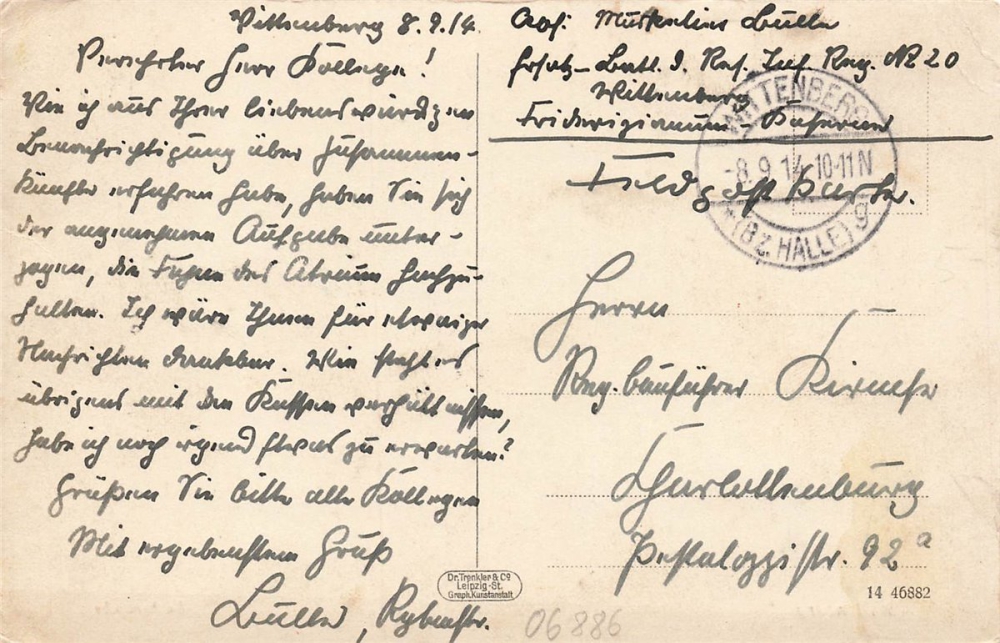 Wittenberg 8.9.14.
Verehrter Herr Kollege!
Wie ich aus Ihrer liebenswürdigen
Benachrichtigung über Zusammen-
künfte erfahren habe, haben Sie sich
der angenehmen Aufgabe unter-
zogen, die Fugen des Atrium hochzu-
halten. Ich wäre Ihnen für etwaige
Nachrichten dankbar. Wie steht es
übrigens mit den Kassenverhältnissen,
habe ich noch irgend etwas zu erwarten?
Grüßen Sie bitte alle Kollegen
Mit ergebenstem Gruß
Abs: Musketier
Ersatz-Batl. d. Res. Inf. Reg. No 20
Wittenberg
Friderizianum Kaserne
Feldpostkarte.
WITTENBERG
-8.9.14.10-11N
*(Bz. HALLE) g
Herrn
Reg. bauführer
Charlottenburg
Pestalozzistr. 92a
Dr. Trenkler & Co
Leipzig-St.
Graph. Kunstanstalt
14 46882
06886